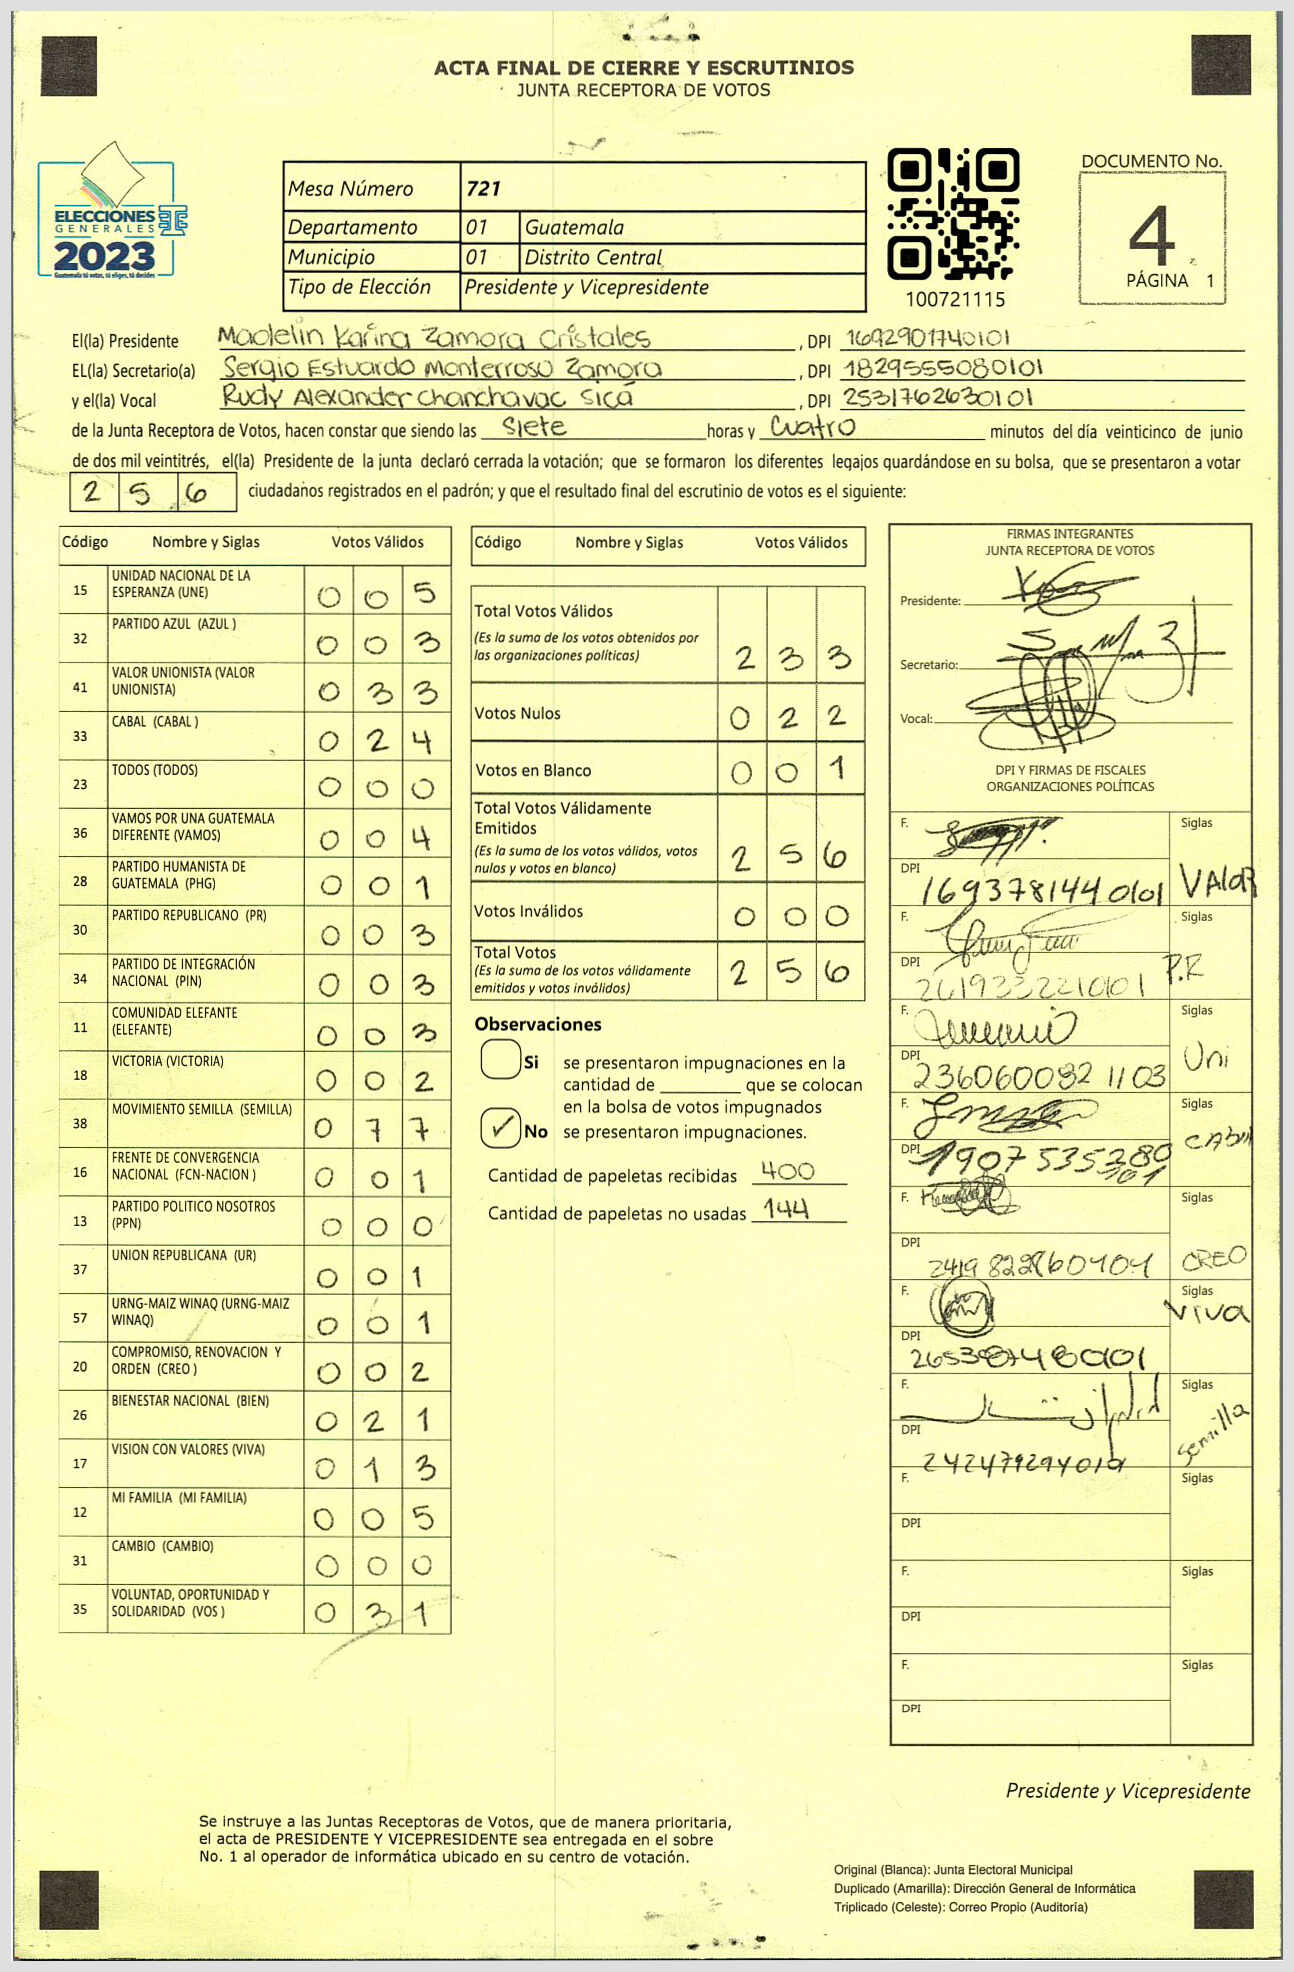 ACTA FINAL DE CIERRE Y ESCRUTINIOS
JUNTA RECEPTORA DE VOTOS
ELECCIONES
GENERALES
2023
Guatemala tú votas, tú eliges, tú decides
Mesa Número 721
Departamento 01 Guatemala
Municipio 01 Distrito Central
Tipo de Elección Presidente y Vicepresidente
100721115
DOCUMENTO No.
4
PÁGINA 1
El(la) Presidente Madelin Karina Zamora Cristales, DPI 1692901740101
EL(la) Secretario(a) Sergio Estuardo Monterroso Zamora, DPI 1829555080101
y el(la) Vocal Rudy Alexander Chanchavac Sicá, DPI 2531762630101
de la Junta Receptora de Votos, hacen constar que siendo las Siete horas y Cuatro minutos del día veinticinco de junio
de dos mil veintitrés, el(la) Presidente de la junta declaró cerrada la votación; que se formaron los diferentes legajos quardándose en su bolsa, que se presentaron a votar
256 ciudadanos registrados en el padrón; y que el resultado final del escrutinio de votos es el siguiente:
Código Nombre y Siglas Votos Válidos
15 UNIDAD NACIONAL DE LA ESPERANZA (UNE) 0 0 5
32 PARTIDO AZUL (AZUL ) 0 0 3
41 VALOR UNIONISTA (VALOR UNIONISTA) 0 3 3
33 CABAL (CABAL ) 0 2 4
23 TODOS (TODOS) 0 0 0
36 VAMOS POR UNA GUATEMALA DIFERENTE (VAMOS) 0 0 4
28 PARTIDO HUMANISTA DE GUATEMALA (PHG) 0 0 1
30 PARTIDO REPUBLICANO (PR) 0 0 3
34 PARTIDO DE INTEGRACIÓN NACIONAL (PIN) 0 0 3
11 COMUNIDAD ELEFANTE (ELEFANTE) 0 0 3
18 VICTORIA (VICTORIA) 0 0 2
38 MOVIMIENTO SEMILLA (SEMILLA) 0 7 7
16 FRENTE DE CONVERGENCIA NACIONAL (FCN-NACION ) 0 0 1
13 PARTIDO POLITICO NOSOTROS (PPN) 0 0 0
37 UNION REPUBLICANA (UR) 0 0 1
57 URNG-MAIZ WINAQ (URNG-MAIZ WINAQ) 0 0 1
20 COMPROMISO, RENOVACION Y ORDEN (CREO ) 0 0 2
26 BIENESTAR NACIONAL (BIEN) 0 2 1
17 VISION CON VALORES (VIVA) 0 1 3
12 MI FAMILIA (MI FAMILIA) 0 0 5
31 CAMBIO (CAMBIO) 0 0 0
35 VOLUNTAD, OPORTUNIDAD Y SOLIDARIDAD (VOS ) 0 3 1
Código Nombre y Siglas Votos Válidos
Total Votos Válidos 2 3 3
(Es la suma de los votos obtenidos por
las organizaciones políticas)
Votos Nulos 0 2 2
Votos en Blanco 0 0 1
Total Votos Válidamente
Emitidos 2 5 6
(Es la suma de los votos válidos, votos
nulos y votos en blanco)
Votos Inválidos 0 0 0
Total Votos 2 5 6
(Es la suma de los votos válidamente
emitidos y votos inválidos)
Observaciones
Si se presentaron impugnaciones en la
cantidad de ________ que se colocan
en la bolsa de votos impugnados
✓ No se presentaron impugnaciones.
Cantidad de papeletas recibidas 400
Cantidad de papeletas no usadas 144
FIRMAS INTEGRANTES
JUNTA RECEPTORA DE VOTOS
Presidente:
Secretario:
Vocal:
DPI Y FIRMAS DE FISCALES
ORGANIZACIONES POLÍTICAS
F. Siglas
DPI 1693781440101 VAlOR
F. Siglas
DPI P.R
F. Siglas
DPI 2360600821103 Uni
F. Siglas
DPI
F. Siglas
DPI CREO
F. Siglas
DPI VIVA
F. Siglas
DPI Semilla
F. Siglas
DPI
F. Siglas
DPI
F. Siglas
DPI
Presidente y Vicepresidente
Se instruye a las Juntas Receptoras de Votos, que de manera prioritaria,
el acta de PRESIDENTE Y VICEPRESIDENTE sea entregada en el sobre
No. 1 al operador de informática ubicado en su centro de votación.
Original (Blanca): Junta Electoral Municipal
Duplicado (Amarilla): Dirección General de Informática
Triplicado (Celeste): Correo Propio (Auditoría)